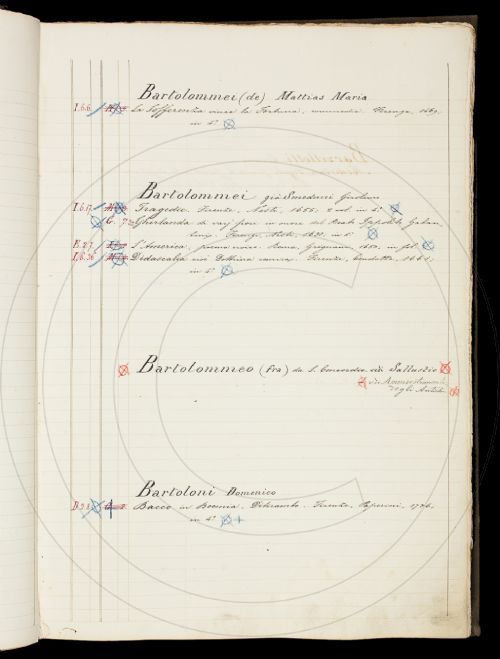 Bartolommei (de) Mattias Maria
I.6.6. La Sofferenza vince la Fortuna, commedia. Firenze, 1669,
in 4º
Bartolommei già Smeducci Girolamo
I.6.17 Tragedie. Firenze, 1655, 2 vol. in 4º
G. Ghirlanda di varj fiori in onore del Beato Ippolito Galan
tini. Firenze,
E.2.7 L'America, poema eroico. Roma, Grignani, 1650, in fol.
I.6.36 Didascalia cioè Dottrina comica. Firenze, 1661,
in 4º
Bartolommeo (fra) da S. Concordio vedi Sallustio
vedi
degli Antichi
Bartoloni Domenico
Bacco in Boemia, Ditirambo. Firenze, Paperini, 1736,
in 4º